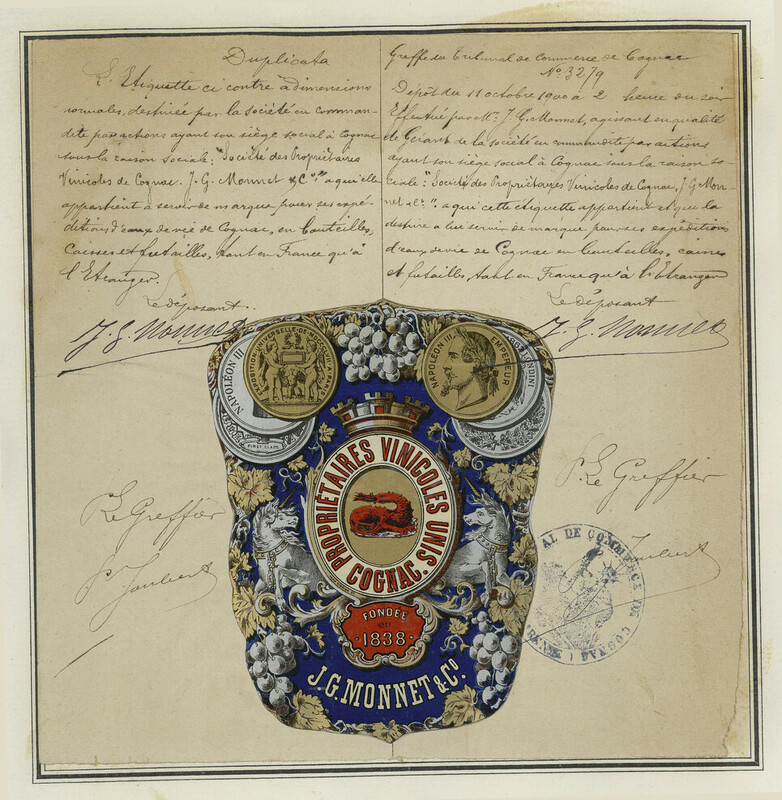 Duplicata
L'Etiquette ci contre à dimensions
normales, destinée par la société en comman-
dite par actions ayant son siège social à Cognac
sous la raison sociale: "Société des Propriétaires
Vinicoles de Cognac. J. G. Monnet & Cie" à qui elle
appartient à servir de marque pour ses expé-
ditions d'eaux de vie de Cognac, en bouteilles,
caisses et futailles, tant en France qu'à
l'Etranger.
Le déposant.
J. G. Monnet
P. Le Greffier
P. Joubert
Greffe du Tribunal de Commerce de Cognac
No 3279
Dépôt du 11 octobre 1900 à 2 heures du soir
Effectué par Mr J. G. Monnet, agissant en qualité
de Gérant de la société en commandite par actions
ayant son siège social à Cognac sous la raison so-
ciale: "Société des Propriétaires Vinicoles de Cognac, J. G. Mon-
net & Cie". a qui cette étiquette appartient et qui la
destine à lui servir de marque pour ses expéditions
d'eaux de vie de Cognac en bouteilles, caisses
et futailles, tant en France qu'à l'Etranger
Le déposant
J. G. Monnet
P. Le Greffier
Joubert
AL DE COMMERCE DE COGNAC
EXPOSITION UNIVERSELLE DE MDCCCLXVII A PARIS
NAPOLÉON III
FIRST CLASS
NAPOLÉON III EMPEREUR
LONDINI
PROPRIÉTAIRES VINICOLES UNIS.
COGNAC.
FONDÉE
EN
1838
J.G. MONNET & Co.